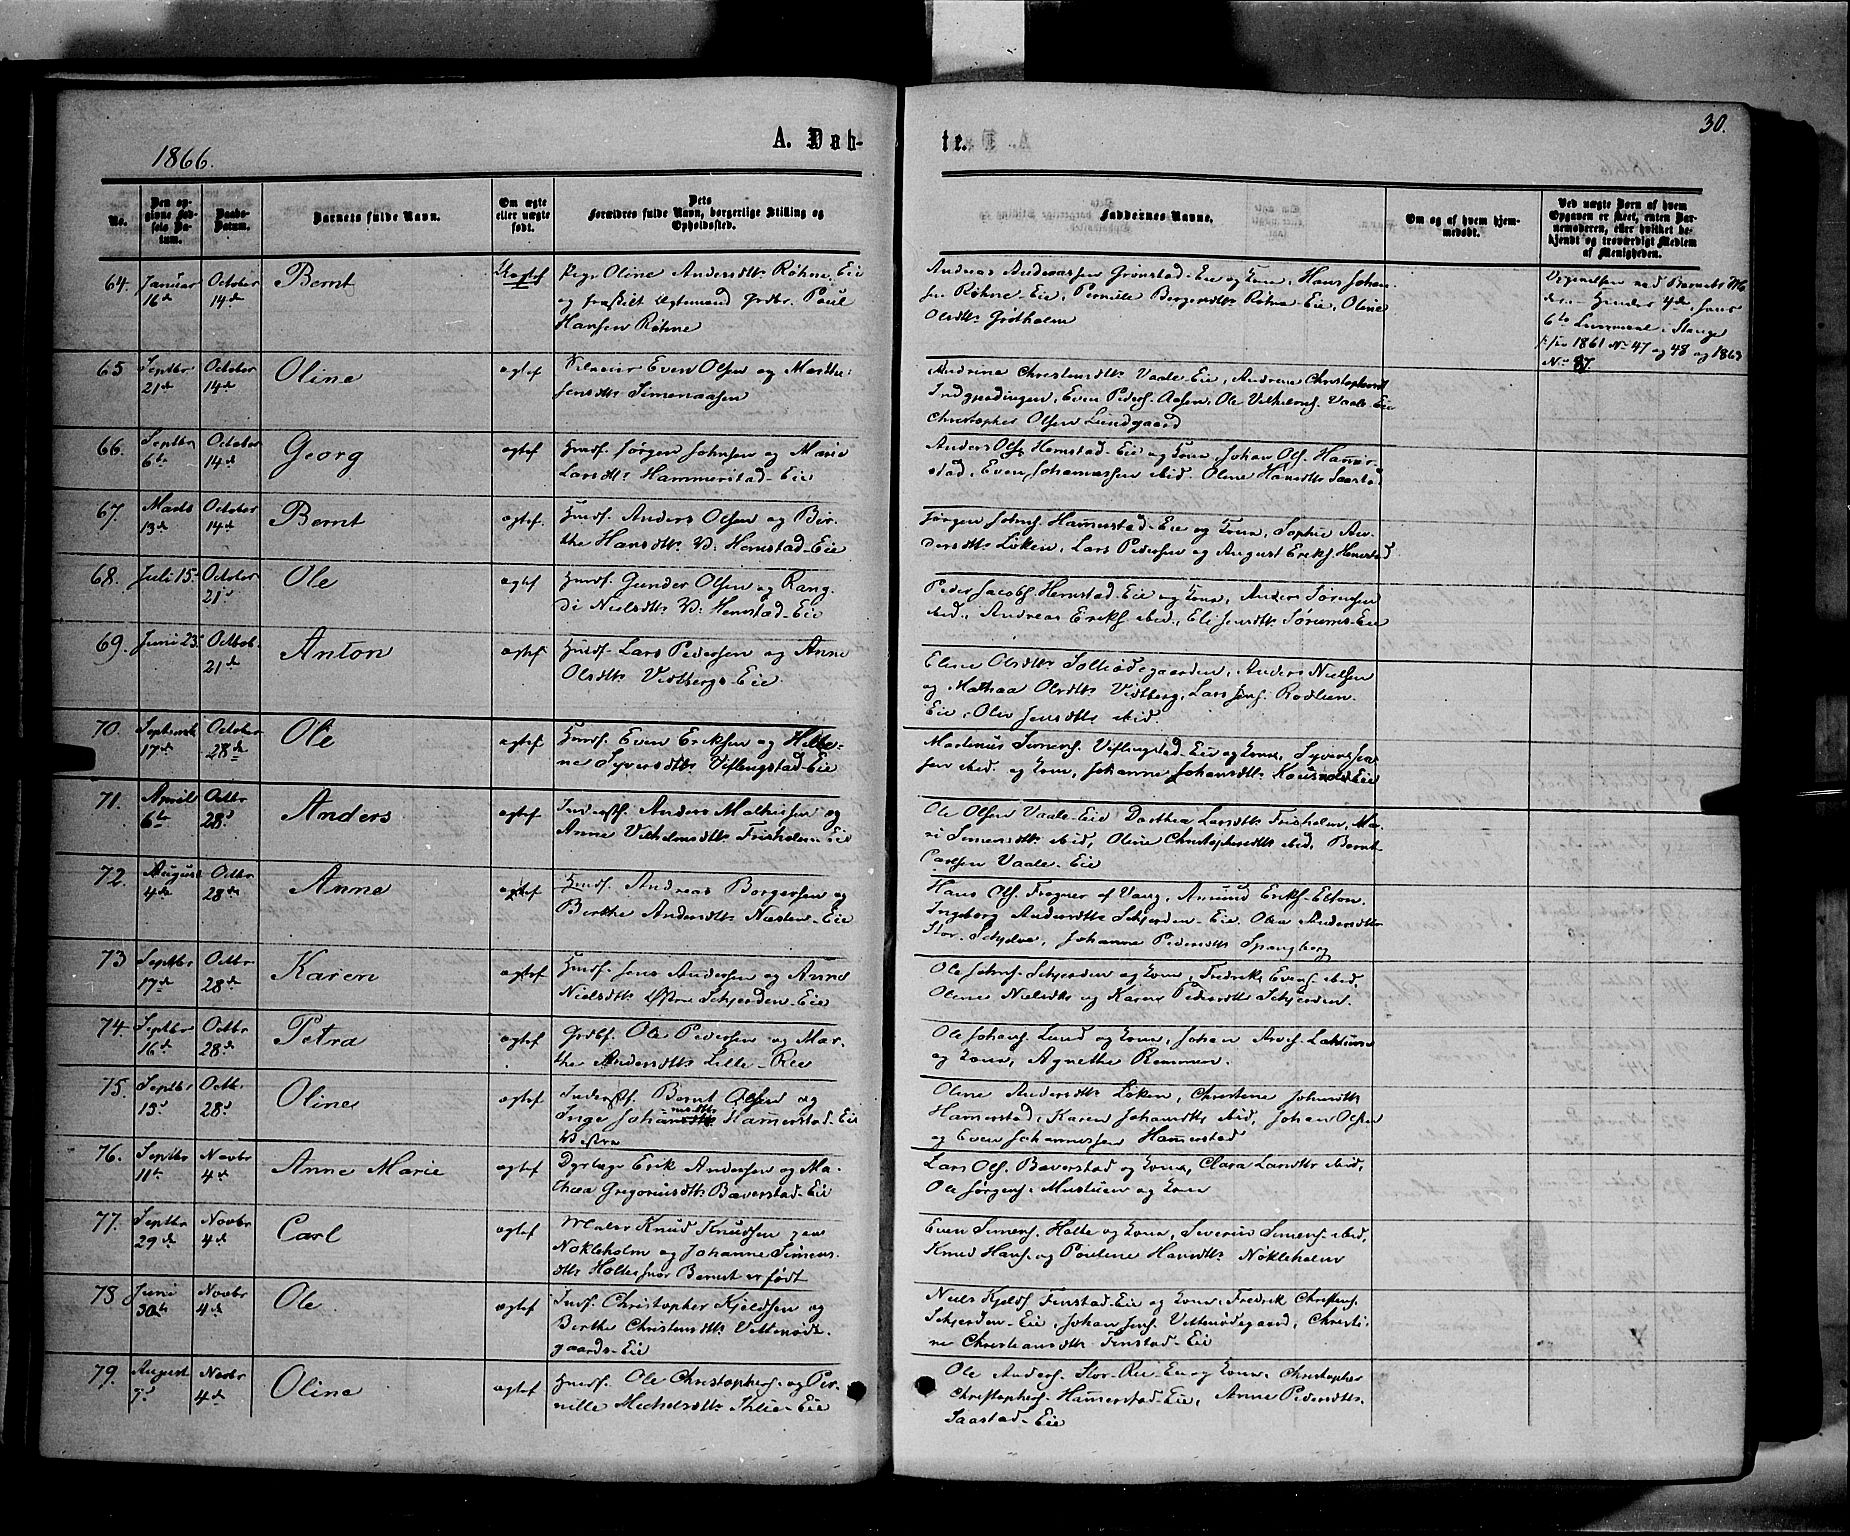 A. Døb-
te.
30.
1866.
No.
Den op-
givne Fød-
sels Da-
tum.
Daabs-
Datum.
Barnets fulde Navn.
Om ægte
eller uægte
født.
Dets
Forældres fulde Navn, borgerlige Stilling og
Opholdssted.
Faddernes Navne.
Om og af hvem hjem-
medøbt.
Ved uægte Børn af hvem
Opgaven er skeet, enten Bar-
nemoderen, eller hvilket be-
kjendt og troværdigt Medlem
af Menigheden.
64. Januar October Bernt Uægtef Pige Oline Andersdtr. Røhne-Eie
16de 14de og fraskilt Egtemand Grdbr. Poul
Hansen Røhne
Andreas Andreassen Grønstad-Eie og Kone, Hans Johan-
sen Røhne-Eie, Pernille Borgersdtr. Røhne-Eie, Oline
Olsdtr. Grøtholm
6te Leiermaal i Stange
1861 No 47 og 48 og 1863
No 87.
65 Septbr October Oline ægtef Even Olsen og Marthe
21de 14de Jensdtr. Simenaasen
Andrine Christensdtr. Vaale-Eie, Andrine Christophersd.
Even Peders. Aasen, Ole Vilhelms. Vaale-Eie
Christopher Olsen Lundgaard
66. Septbr October Georg ægtef Husf. Jørgen Johnsen og Marie
6te 14de Larsdtr. Hammerstad-Eie
Anders Ols. Hemstad-Eie og Kone, Johan Ols. Hamer-
stad, Even Johannessen ibid. Oline Hansdtr. Saastad
67. Marts October Bernt ægtef. Husf. Anders Olsen og Bir-
13de 14de the Hansdtr. V. Hemstad-Eie
Jørgen Johns. Hamerstad-Eie og Kone, Sophie An-
dersdtr. Løken, Lars Pedersen og August Eriks. Hemstad
68. Juli 15. October Ole ægtef Husf. Gunder Olsen og Rang-
21de di Nielsdtr. V. Hemstad-Eie
Peder Jacobs. Hemstad-Eie og Kone, Anders Sørensen
ibid., Andreas Eriks. ibid., Eli Jensdtr. Sørums-Eie
69. Juni 23. Octob. Anton ægtef Husf. Lars Pedersen og Anne
21de Olsdtr. Vidbergs-Eie
Eline Olsdtr. Solliødegaarden, Anders Nielsen
og Mathea Olsdtr. Vidberg, Lars Jens. Rodlien
Eie, Olea Jensdtr. ibid.
70. October Ole ægtef Husf. Even Eriksen og Helle-
17de 28de ne Syversdtr. Viflingstad-Eie
Martinus Simens. Viflingstad-Eie og Kone, Syver
sen ibid. og Kone, Johanne Johansdtr.
71. April Octbr Anders ægtef Inderst. Anders Mathisen og
6te 28de Anne Vilhelmsdtr. Frisholm-Eie
Ole Olsen Vaale-Eie, Dorthea Larsdtr. Frisholm, Ma-
ri Simensdtr. ibid, Oline Christophersdtr. ibid, Bernt
Carlsen Vaale-Eie
72. August Octbr Anne ægtef Husf. Andreas Borgersen og
4de 28de Berthe Andersdtr. Næsten-Eie
Hans Ols. Frogner af Vang, Amund Eriks. Elton
Ingeborg Andersdtr. Schjerden-Eie. Olea Andersdtr.
Stor-Schjelve, Johanne Pedersdtr. Spangberg
73 Septbr Octbr Karen ægtef Husf. Jens Andersen og Anne
17de 28de Nielsdtr. Østre Schjerden-Eie
Ole Johns. Schjerden og Kone, Fredrik Evens. ibid,
Oline Nielsdtr. og Karen Pedersdtr. Schjerden.
74. Septbr Octbr Petra ægtef Grdbf. Ole Pedersen og Mar-
16de 28de the Andersdtr. Lille-Ree
Ole Johans. Lund og Kone, Johan
og Kone, Agnethe Rommen.
75. Septbr Octbr. Oline ægtef Inderst. Bernt Olsen og
13de 28de Inge Johannesdtr Hamerstad-Eie
Vestre
Oline Andersdtr. Løken, Christine Johnsdtr.
Hamerstad, Karen Johansdtr. ibid, Johan Olsen
og Even Johannessen Hamerstad
76. Septbr Novbr Anne Marie ægtef Dyrlæge Erik Andersen og Ma-
11te 4de thea Gregoriusdtr. Baverstad-Eie
Lars Ols. Baverstad og Kone, Clara Larsdtr. ibid,
Ole Jørgens. Mustuen og Kone
77. Septbr Novbr Carl ægtef Maler Knud Knudsen
29de 4de Nøkleholm og Johanne Simens-
dtr. Holte, hvor Barnet er født
Even Simens. Holte og Kone, Severin Simens. ibid,
Knud Hans. og Pouline Hansdtr. Nøkleholm
78 Juni Novbr Ole ægtef Indf. Christopher Kjeldsen og
30te 4de Berthe Christensdtr. Vettenøde-
gaards-Eie
Niels Kjelds. Finstad-Eie og Kone, Fredrik Christens.
Schjerden-Eie, Johan Jens. Vettenødegaard, Christi-
ne Christiansdtr. Finstad-Eie
79. August Novbr Oline ægtef Husf. Ole Christophers. og Per-
4de nille Michelsdtr. Ihlie-Eie
Ole Anders. Stor-Ree-Eie og Kone, Christopher
Christophers. Hamerstad-Eie, Anne Pedersdtr.
Saastad-Eie